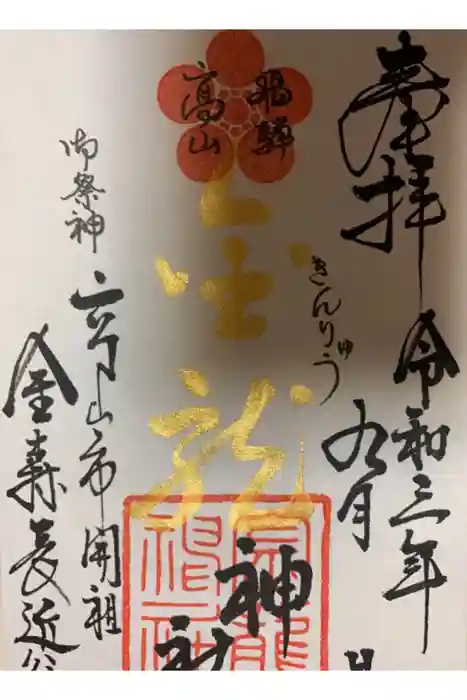 奉拝
令和三年
九月
日
飛騨
高山
金龍
きんりゅう
神社
御祭神
高山市開祖
金森長近公